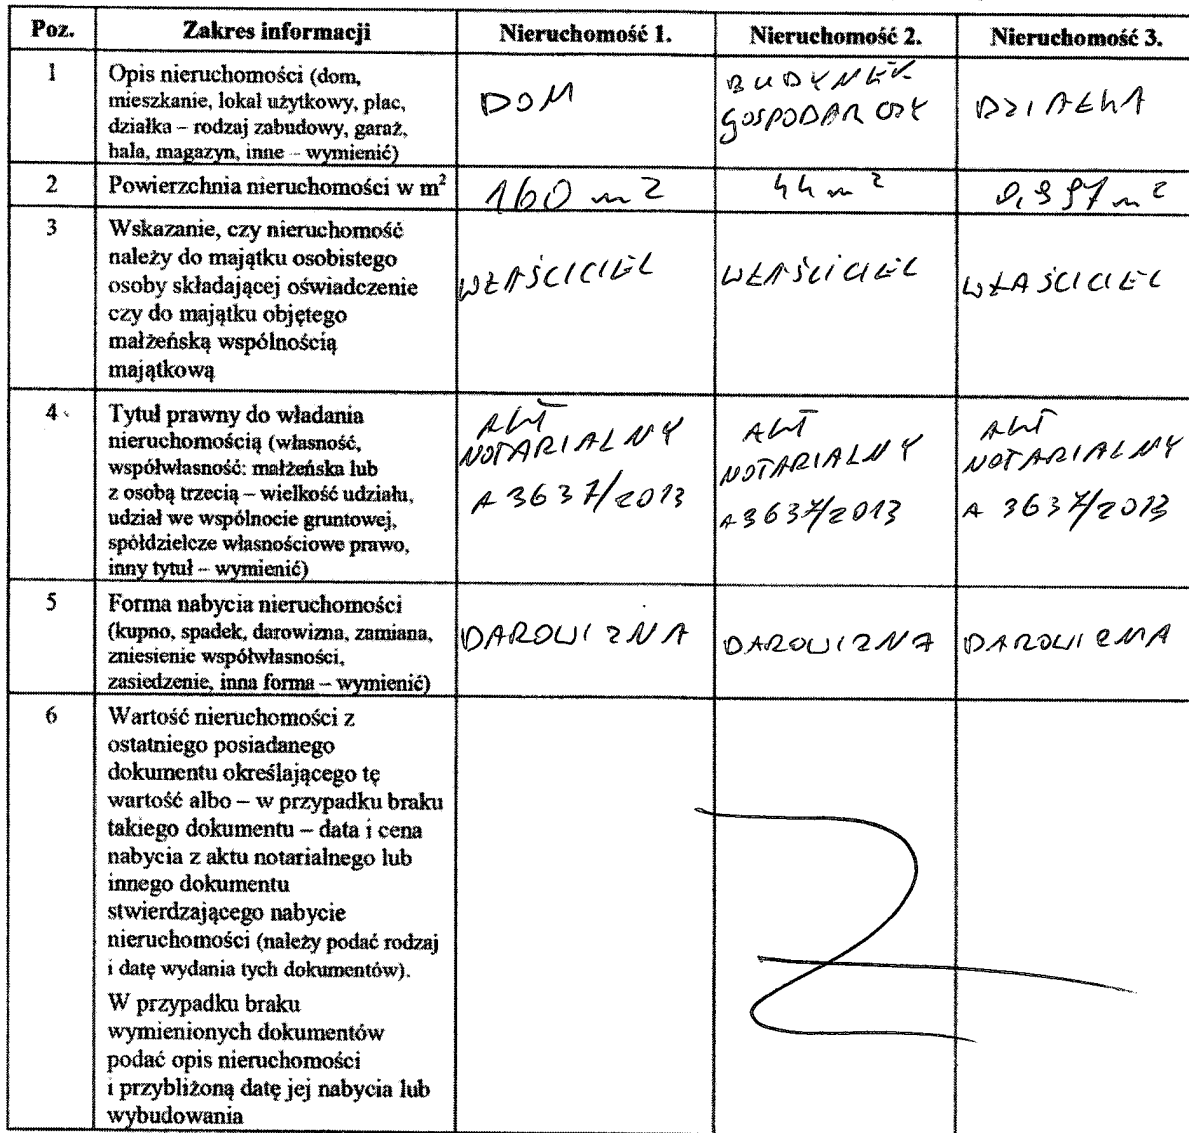 Poz. Zakres informacji Nieruchomość 1. Nieruchomość 2. Nieruchomość 3.
1 Opis nieruchomości (dom,
mieszkanie, lokal użytkowy, plac,
działka – rodzaj zabudowy, garaż,
hala, magazyn, inne – wymienić)
DOM
BUDYNEK
GOSPODARCZY
DZIAŁKA
2 Powierzchnia nieruchomości w m²
160 m2
44 m 2
m 2
3 Wskazanie, czy nieruchomość
należy do majątku osobistego
osoby składającej oświadczenie
czy do majątku objętego
małżeńską wspólnością
majątkową
WŁAŚCICIEL
WŁAŚCICIEL
WŁAŚCICIEL
4 Tytuł prawny do władania
nieruchomością (własność,
współwłasność: małżeńska lub
z osobą trzecią – wielkość udziału,
udział we wspólnocie gruntowej,
spółdzielcze własnościowe prawo,
inny tytuł – wymienić)
AKT
NOTARIALNY
A 3637/2013
AKT
NOTARIALNY
A 3637/2013
AKT
NOTARIALNY
A 3637/2013
5 Forma nabycia nieruchomości
(kupno, spadek, darowizna, zamiana,
zniesienie współwłasności,
zasiedzenie, inna forma – wymienić)
DAROWIZNA
DAROWIZNA
DAROWIZNA
6 Wartość nieruchomości z
ostatniego posiadanego
dokumentu określającego tę
wartość albo – w przypadku braku
takiego dokumentu – data i cena
nabycia z aktu notarialnego lub
innego dokumentu
stwierdzającego nabycie
nieruchomości (należy podać rodzaj
i datę wydania tych dokumentów).
W przypadku braku
wymienionych dokumentów
podać opis nieruchomości
i przybliżoną datę jej nabycia lub
wybudowania